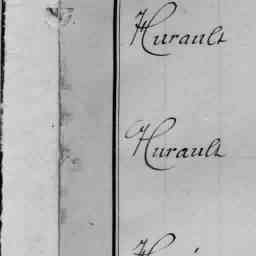 Hurault
Hurault